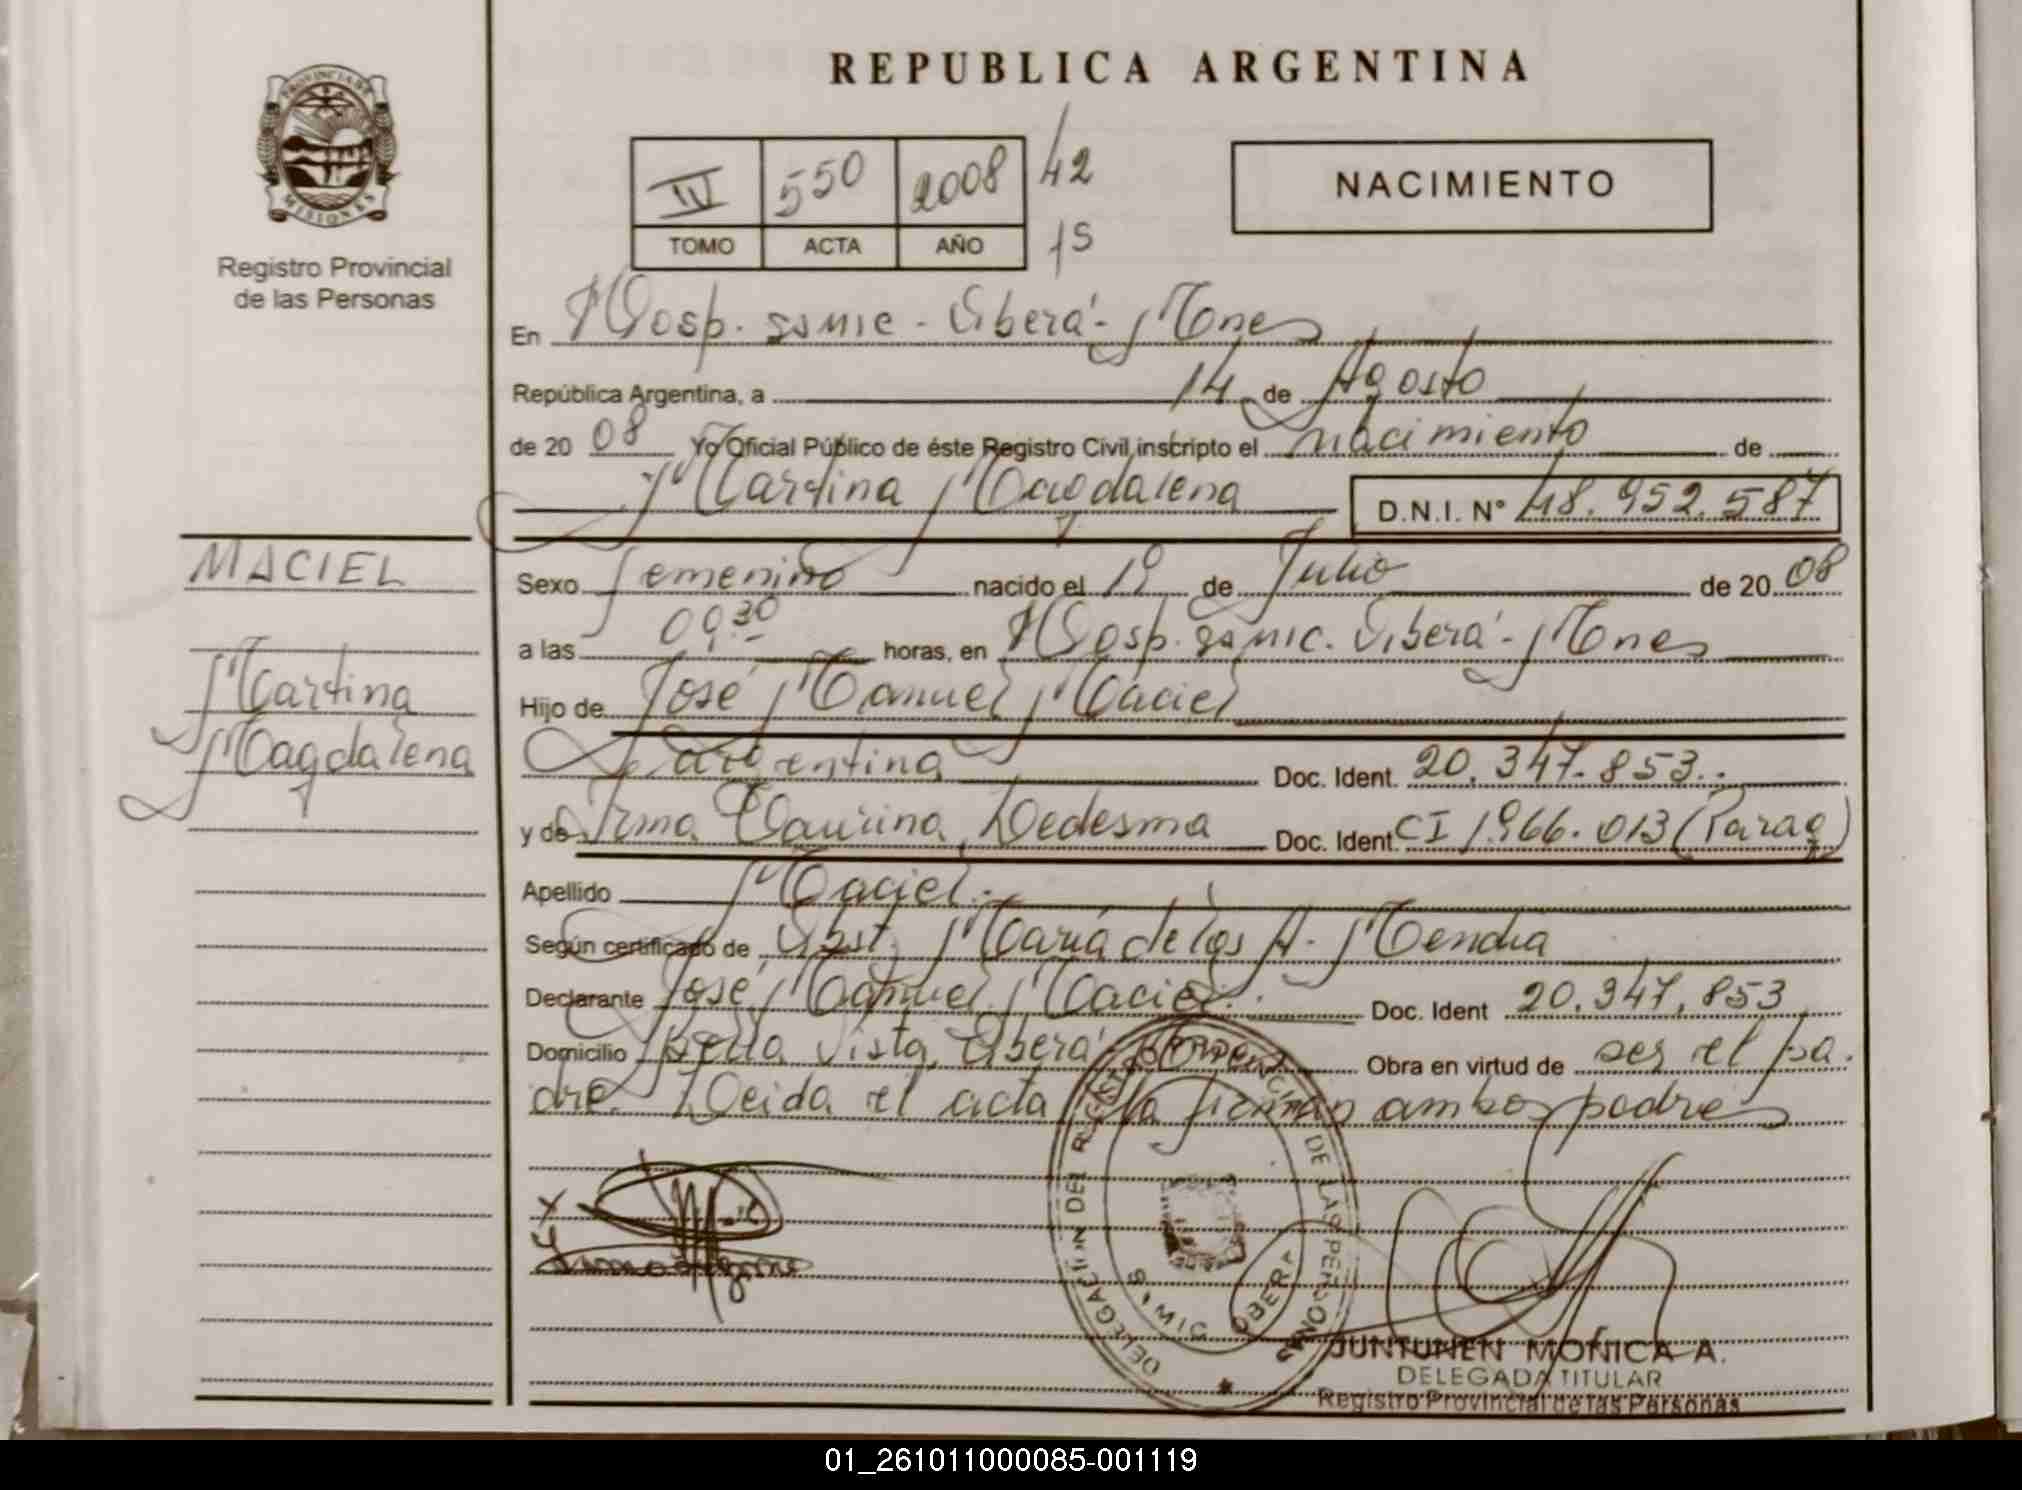 PROVINCIA DE
MISIONES
Registro Provincial
de las Personas
REPUBLICA ARGENTINA
IV 550 2008 42
TOMO ACTA AÑO 15
NACIMIENTO
En Hosp. samic - Oberá - Mnes
República Argentina, a 14 de Agosto
de 2008 Yo Oficial Público de éste Registro Civil inscripto el nacimiento de
Martina Magdalena D.N.I. N° 48.952.587
MACIEL
Martina
Magdalena
Sexo femenino nacido el 1º de Julio de 2008
a las 09.30 horas, en Hosp. samic. Oberá - Mnes
Hijo de José Manuel Maciel
argentina Doc. Ident. 20.347.853..
y de Irma Taurina Ledesma Doc. Ident. CI 1.966.013 (Parag)
Apellido Maciel.
Según certificado de Obst. María de los A. Mendia
Declarante José Manuel Maciel Doc. Ident 20.347.853
Domicilio Bella Vista, Oberá Obra en virtud de ser el pa.
dre. Leida el acta la firman ambos padres
DELEGACION DEL REGISTRO PROVINCIAL DE LAS PERSONAS
OBERA
JUNTUNEN MONICA A.
DELEGADA TITULAR
Registro Provincial de las Personas
01_261011000085-001119